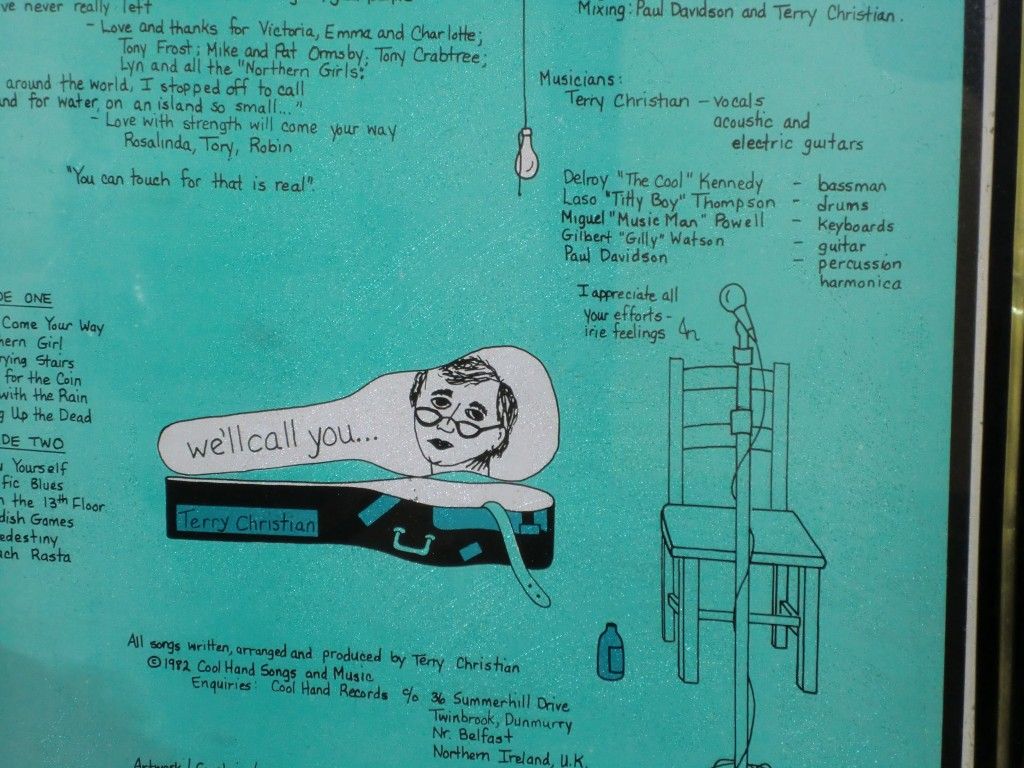 've never really left
- Love and thanks for Victoria, Emma and Charlotte;
Tony Frost; Mike and Pat Ormsby; Tony Crabtree;
Lyn and all the "Northern Girls".
around the world, I stopped off to call
and for water, on an island so small..."
- Love with strength will come your way
Rosalinda, Tory, Robin
"You can touch for that is real".
Mixing: Paul Davidson and Terry Christian.
Musicians:
Terry Christian - vocals
acoustic and
electric guitars
Delroy "The Cool" Kennedy - bassman
Laso "Titty Boy" Thompson - drums
Miguel "Music Man" Powell - keyboards
Gilbert "Gilly" Watson - guitar
Paul Davidson - percussion
harmonica
I appreciate all
your efforts -
irie feelings
DE ONE
Come Your Way
hern Girl
rying Stairs
for the Coin
with the Rain
g Up the Dead
DE TWO
Yourself
fic Blues
n the 13th Floor
dish Games
edestiny
ach Rasta
we'll call you...
Terry Christian
All songs written, arranged and produced by Terry Christian
©1982 Cool Hand Songs and Music
Enquiries: Cool Hand Records c/o 36 Summerhill Drive
Twinbrook, Dunmurry
Nr. Belfast
Northern Ireland, U.K.